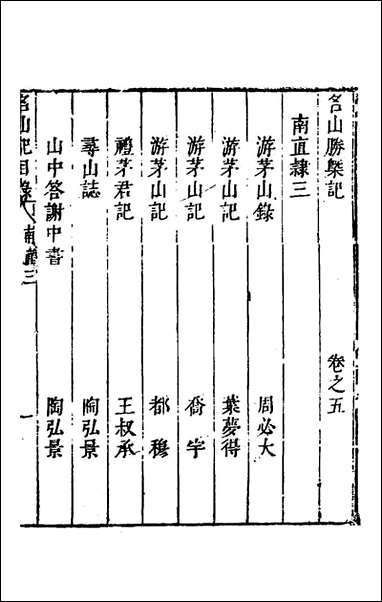 名山勝槩記 卷之五
南直隸三
游茅山錄 周必大
游茅山記 葉夢得
游茅山記 喬宇
游茅山記 都穆
禮茅君記 王叔承
尋山誌 陶弘景
山中答謝中書 陶弘景
名山記目錄 南直三 一